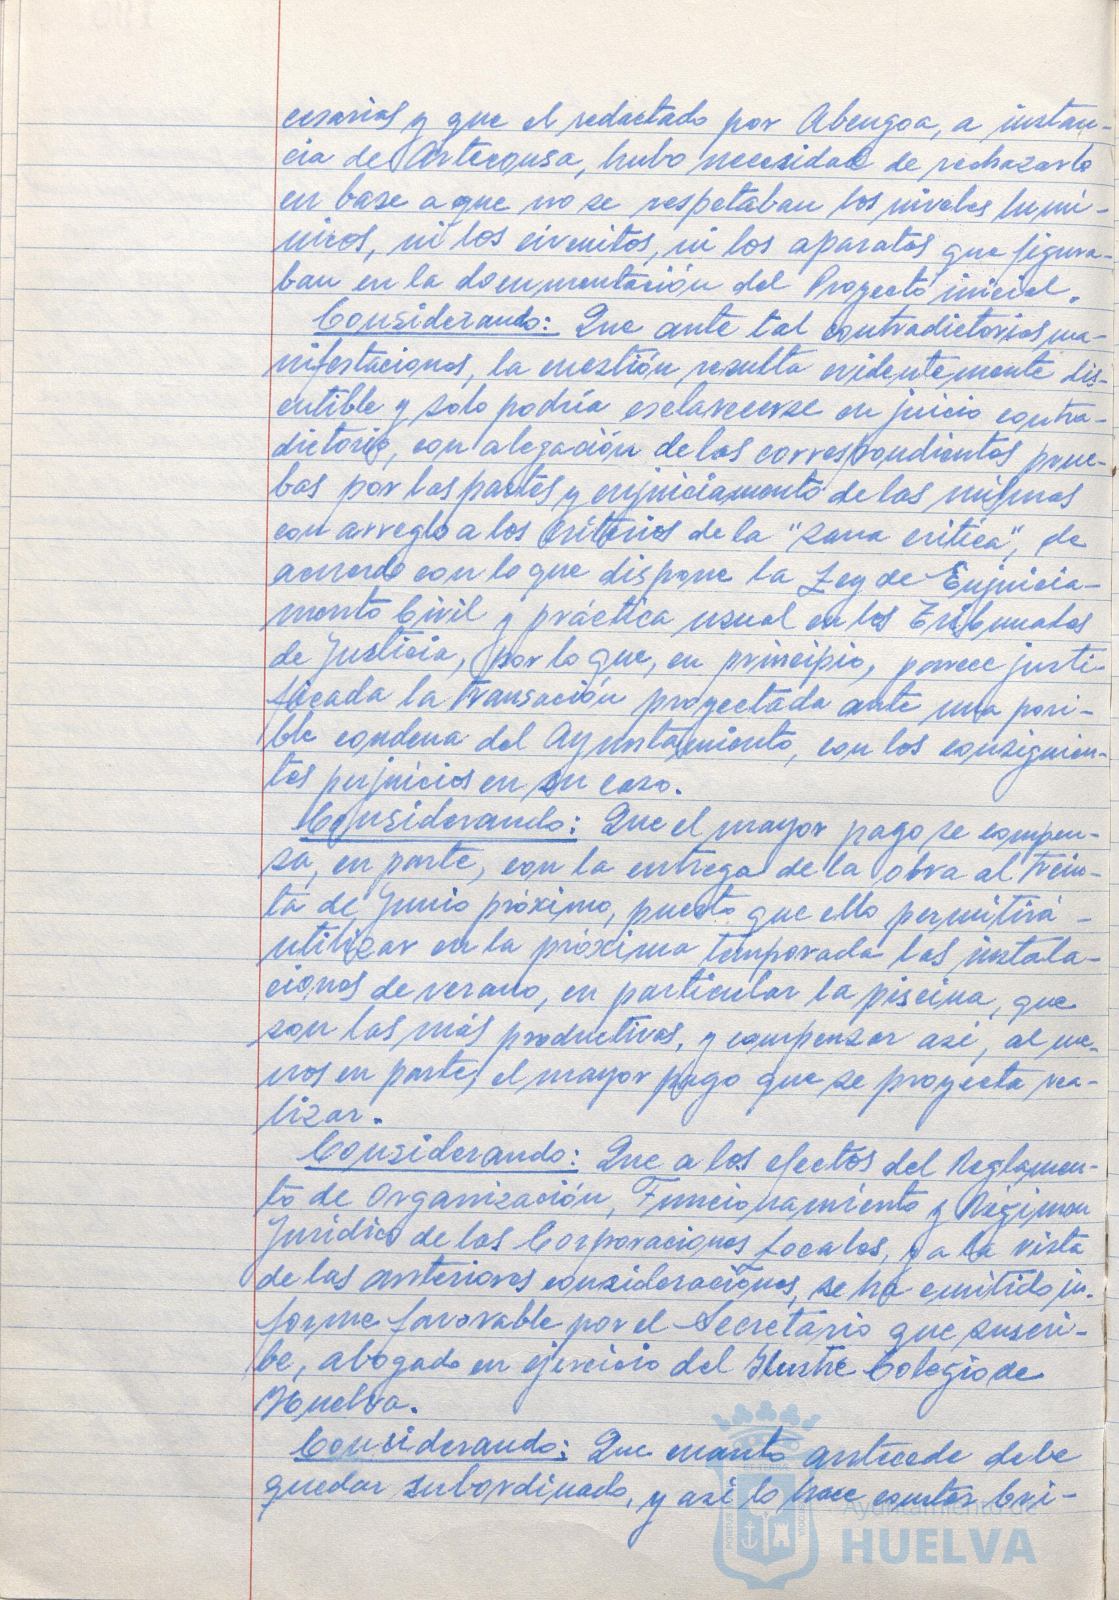 cesarias y que el redactado por Abengoa, a instan-
cia de Artecousa, hubo necesidad de rechazarlo
en base a que no se respetaban los niveles lumí-
nicos, ni los circuitos, ni los aparatos que figura-
ban en la documentación del Proyecto inicial.
Considerando: Que ante tal contradictorias ma-
nifestaciones, la cuestión resulta evidentemente dis-
cutible y solo podría esclarecerse en juicio contra-
dictorio, con alegación de las correspondientes prue-
bas por las partes y enjuiciamiento de las mismas
con arreglo a los Criterios de la "sana crítica", de
acuerdo con lo que dispone la Ley de Enjuicia-
miento Civil y práctica usual en los Tribunales
de Justicia, por lo que, en principio, parece justi-
ficada la transación proyectada ante una posi-
ble condena del Ayuntamiento, con los consiguien-
tes perjuicios en su caso.
Considerando: Que el mayor pago se compen-
sa, en parte, con la entrega de la obra al trein-
ta de Junio próximo, puesto que ello permitirá -
utilizar en la próxima temporada las instala-
ciones de verano, en particular la piscina, que
son las más productivas, y compensar así, al me-
nos en parte, el mayor pago que se proyecta rea-
lizar.
Considerando: Que a los efectos del Reglamen-
to de Organización, Funcionamiento y Régimen
Jurídico de las Corporaciones Locales, y a la vista
de las anteriores consideraciones, se ha emitido in-
forme favorable por el Secretario que suscri-
be, abogado en ejercicio del Ilustre Colegio de
Huelva.
Considerando: Que cuanto antecede debe
quedar subordinado, y así lo hace constar Cri-
Ayuntamiento de
HUELVA